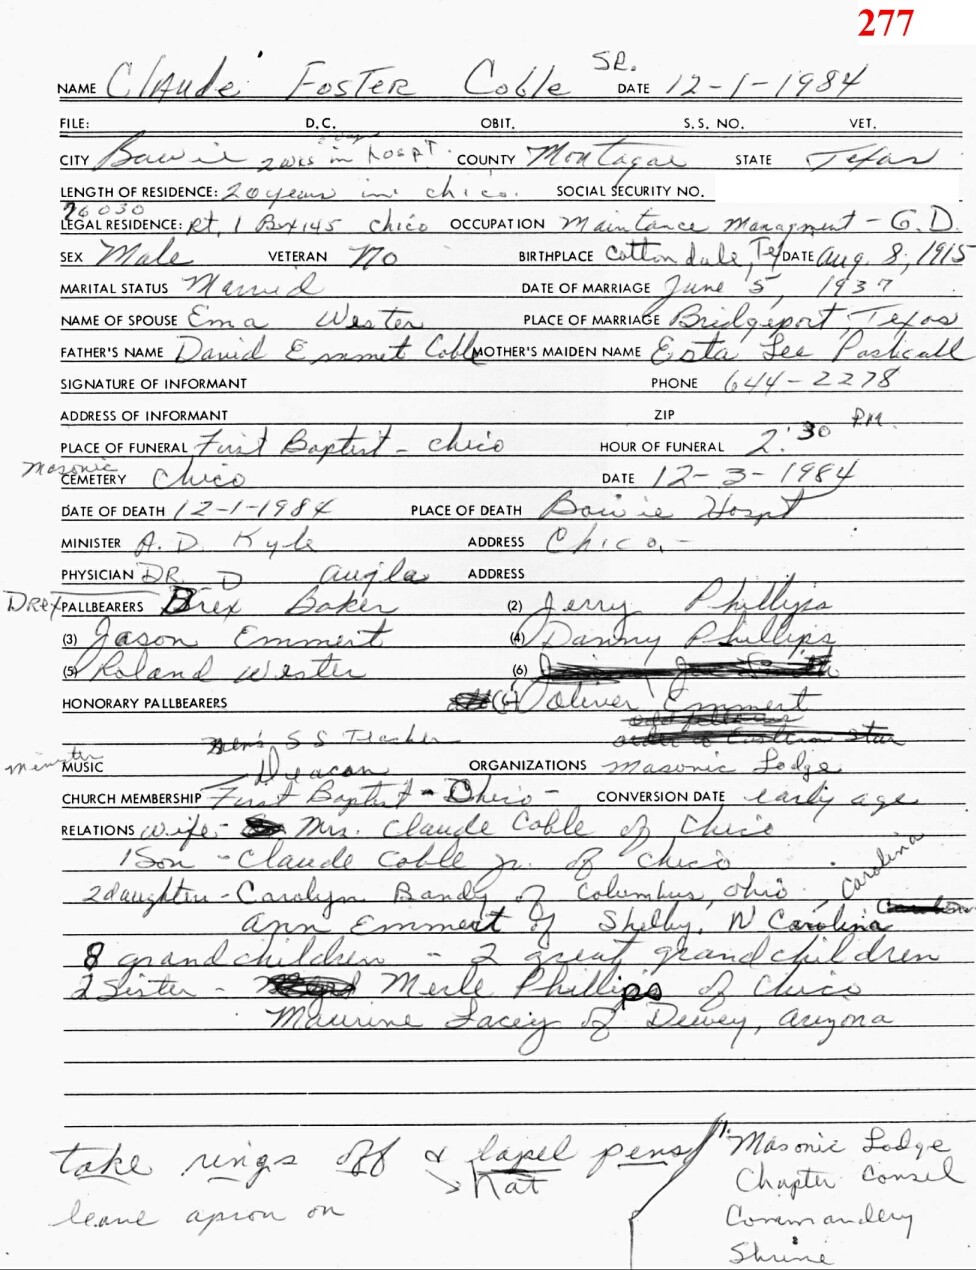 277
SR.
NAME Claude Foster Coble DATE 12-1-1984
FILE: D.C. OBIT. S.S. NO. VET.
CITY Bowie 2 wks in hospt. COUNTY Montague STATE Texas
LENGTH OF RESIDENCE: 20 years in chico. SOCIAL SECURITY NO.
76030
LEGAL RESIDENCE: Rt. 1 Box 145 Chico OCCUPATION Maintance Managment - G.D.
SEX Male VETERAN No BIRTHPLACE Cottondale, Tex DATE Aug. 8, 1915
MARITAL STATUS Married DATE OF MARRIAGE June 5, 1937
NAME OF SPOUSE Ema Wester PLACE OF MARRIAGE Bridgeport, Texas
FATHER'S NAME David Emmet Coble MOTHER'S MAIDEN NAME Esta Lee Paskcall
SIGNATURE OF INFORMANT PHONE 644-2278
ADDRESS OF INFORMANT ZIP
PLACE OF FUNERAL First Baptist - Chico HOUR OF FUNERAL 2:30 PM
Masonic
CEMETERY Chico DATE 12-3-1984
DATE OF DEATH 12-1-1984 PLACE OF DEATH Bowie Hospt
MINISTER A. D. Kyle ADDRESS Chico, -
PHYSICIAN DR. D ADDRESS
Drex PALLBEARERS Drex Baker (2) Jerry Phillips
(3) Jason Emmert (4) Danny Phillips
(5) Roland Wester (6)
HONORARY PALLBEARERS (6) Oliver Emmert
odd fellows
Men's S S Teacher order o Eastern Star
minister MUSIC Deacon ORGANIZATIONS Masonic Lodge
CHURCH MEMBERSHIP First Baptist - Chico - CONVERSION DATE early age
RELATIONS wife - Mrs. Claude Coble of Chico
1 Son - Claude Coble Jr. of Chico
2 daughter - Carolyn Bandy of Columbus, Ohio, Carolina
Ann Emmert of Shelby, N Carolina
8 grandchildren - 2 great grandchildren
2 Sister - Merle Phillips of Chico
Maurine Lacey of Dewey, Arizona
take rings off & lapel pens
hat
leave apron on
Masonic Lodge
Chapter Consel
Commandery
Shrine